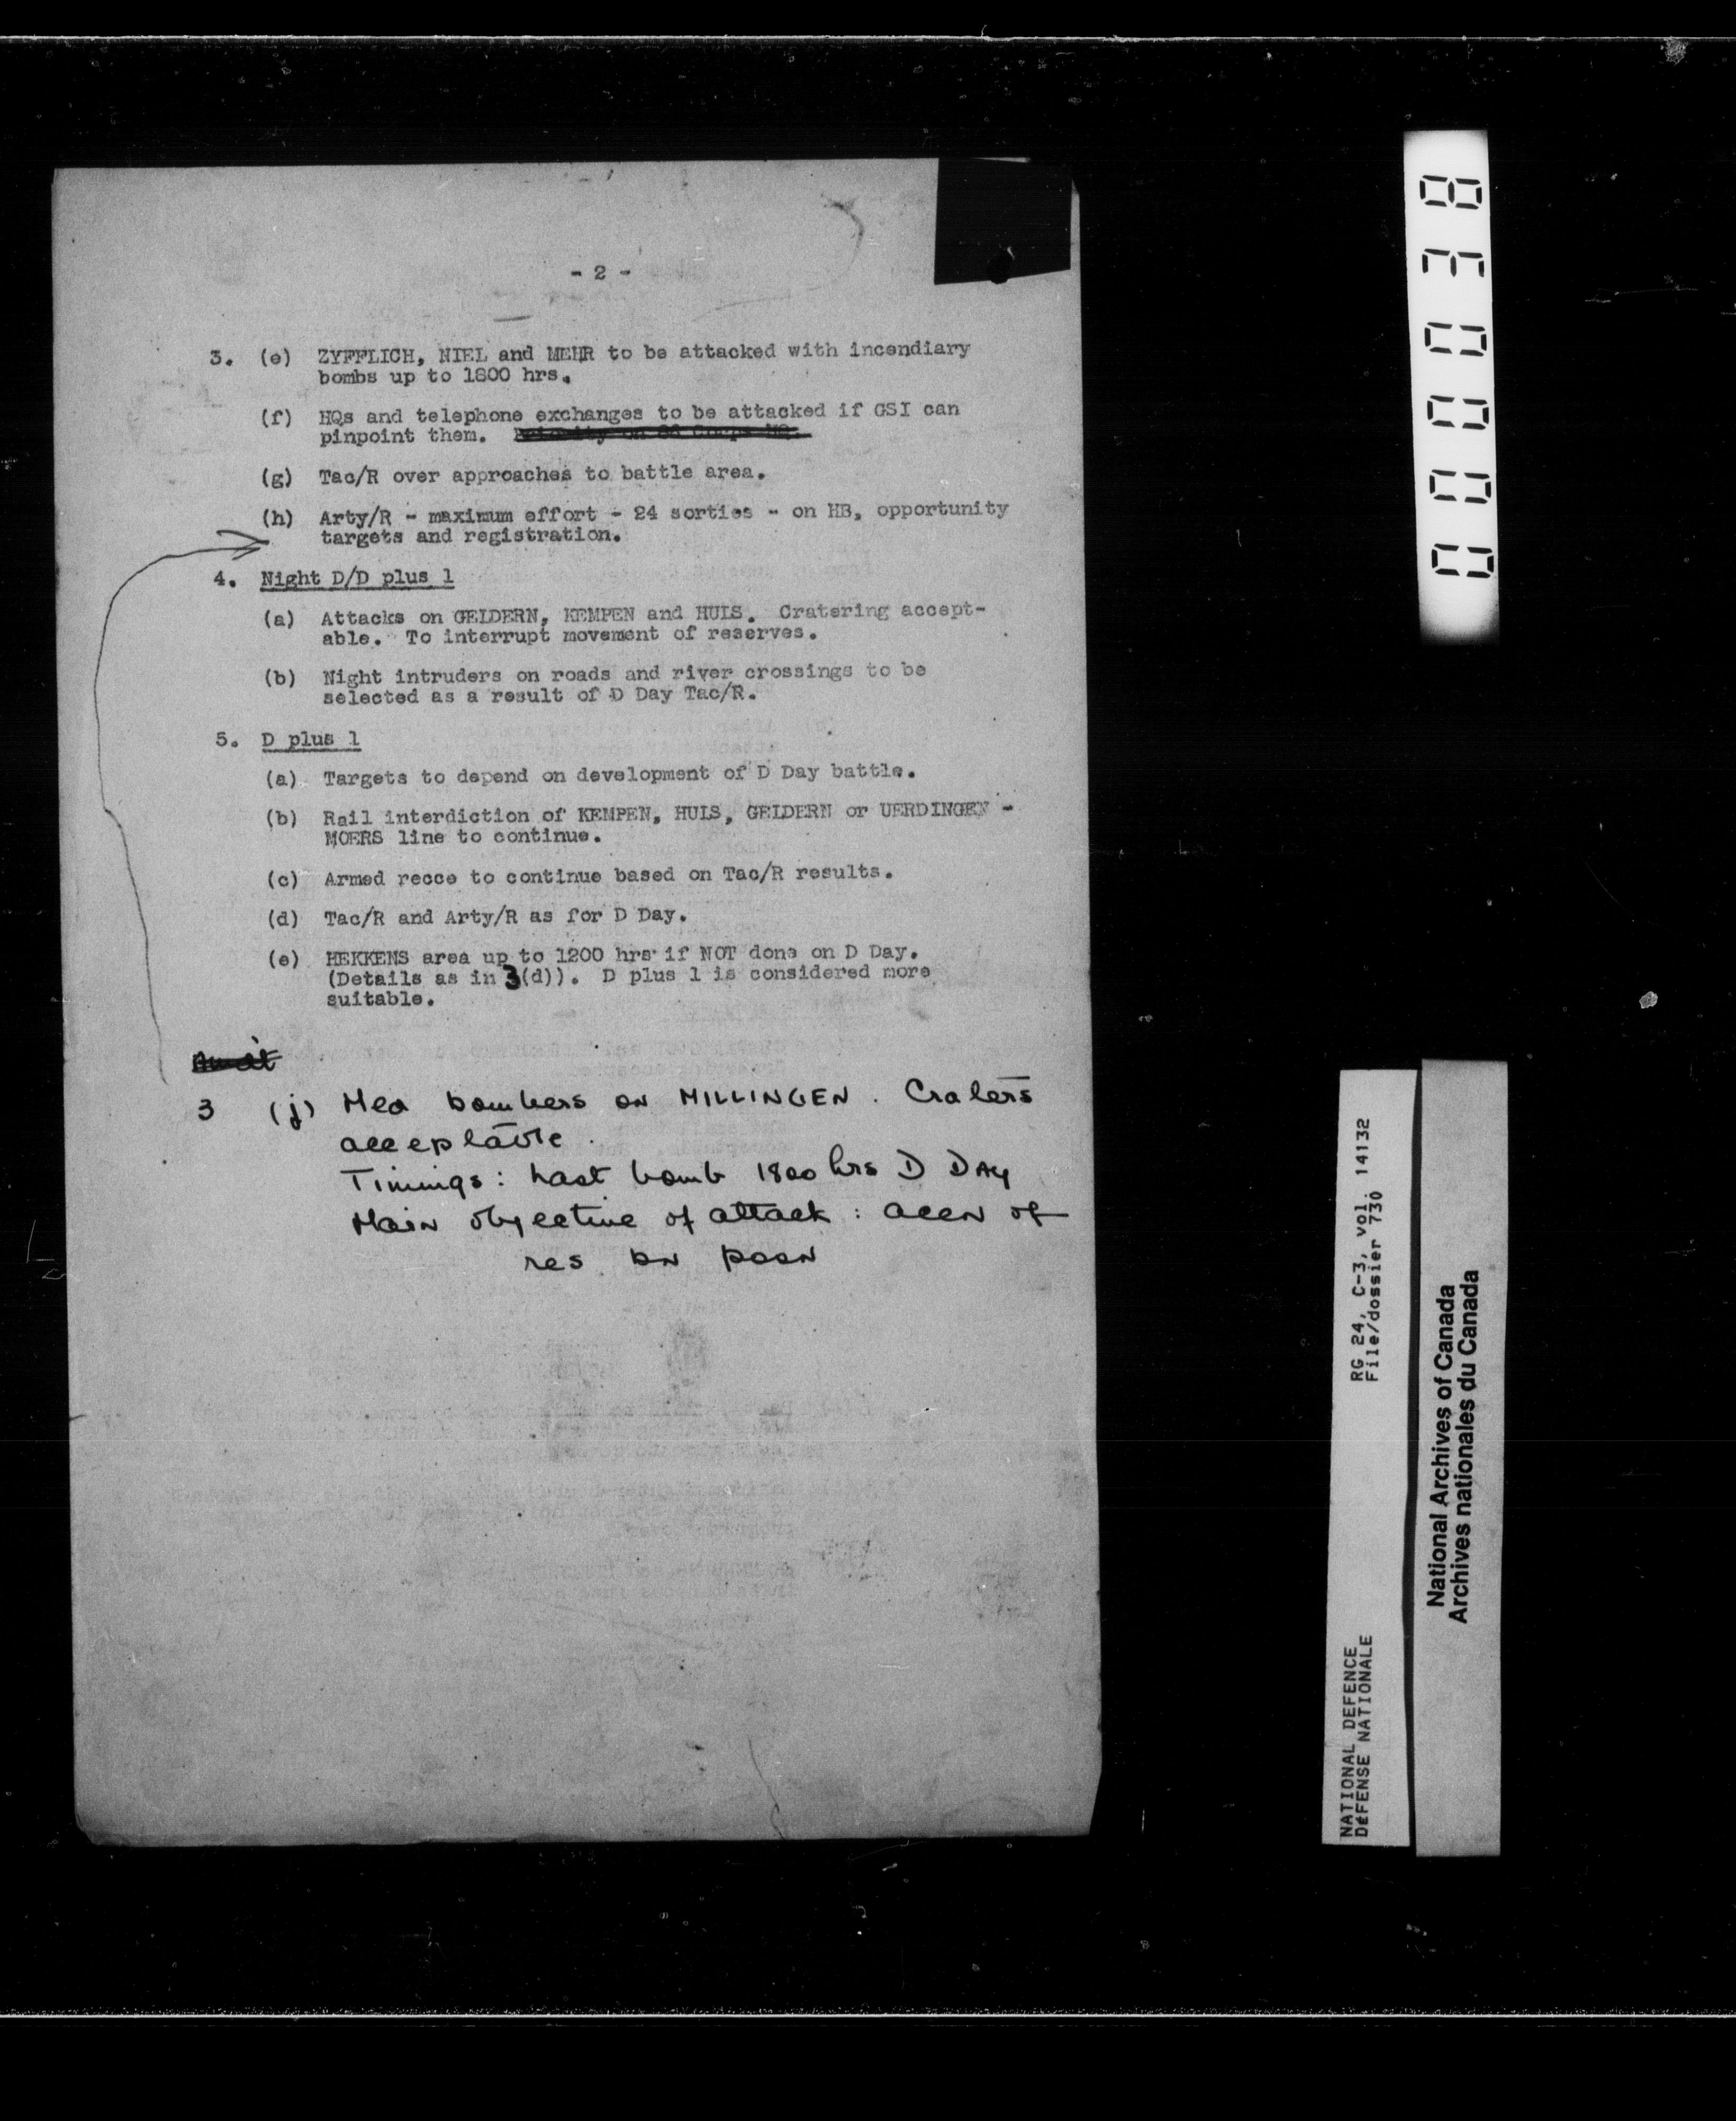 - 2 -
3. (e) ZYFFLICH, NIEL and MEHR to be attacked with incendiary
bombs up to 1800 hrs.
(f) HQs and telephone exchanges to be attacked if GSI can
pinpoint them. Priority on 86 Corps HQ.
(g) Tac/R over approaches to battle area.
(h) Arty/R - maximum effort - 24 sorties - on HB, opportunity
targets and registration.
4. Night D/D plus 1
(a) Attacks on GELDERN, KEMPEN and HUIS. Cratering accept-
able. To interrupt movement of reserves.
(b) Night intruders on roads and river crossings to be
selected as a result of D Day Tac/R.
5. D plus 1
(a) Targets to depend on development of D Day battle.
(b) Rail interdiction of KEMPEN, HUIS, GELDERN or UERDINGEN -
MOERS line to continue.
(c) Armed recce to continue based on Tac/R results.
(d) Tac/R and Arty/R as for D Day.
(e) HEKKENS area up to 1200 hrs if NOT done on D Day.
(Details as in 3(d)). D plus 1 is considered more
suitable.
3 (j) Med bombers on MILLINGEN. Craters
acceptable.
Timings: Last bomb 1800 hrs D DAY
Main objective of attack: accn of
res bn posn
000038
RG 24, C-3, vol. 14132
File/dossier 730
NATIONAL DEFENCE
DéFENSE NATIONALE
National Archives of Canada
Archives nationales du Canada